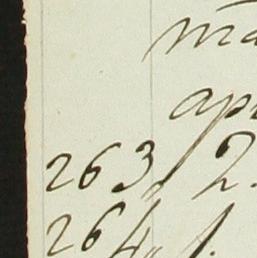 ma
apr
263, 2.
264, 1.